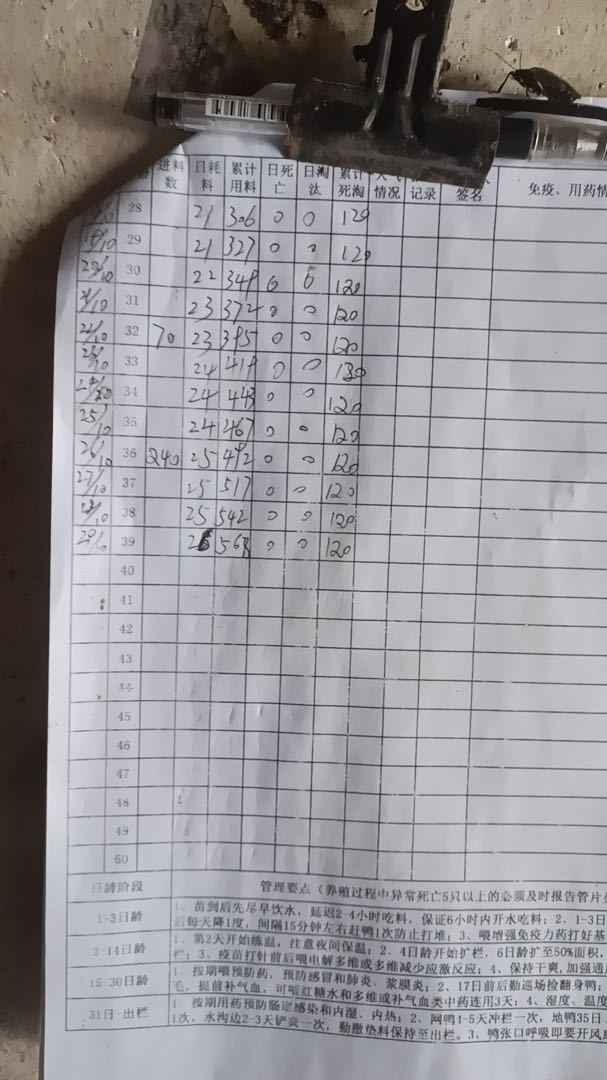 进料数 日耗料 累计用料 日死亡 日淘汰 累计死淘 天气情况 记录 签名 免疫、用药情
28 21 306 0 0 120
19/10 29 21 327 0 0 120
20/10 30 22 349 0 0 120
21/10 31 23 372 0 0 120
22/10 32 70 23 395 0 0 120
23/10 33 24 419 0 0 120
24/10 34 24 443 0 0 120
25/10 35 24 467 0 0 120
26/10 36 240 25 492 0 0 120
27/10 37 25 517 0 0 120
28/10 38 25 542 0 0 120
29/10 39 26 568 0 0 120
40
41
42
43
44
45
46
47
48
49
50
日龄阶段 管理要点（养殖过程中异常死亡5只以上的必须及时报告管片
1-3日龄 1、苗到后先尽早饮水，延迟2-4小时吃料，保证6小时内开水吃料；2、1-3日
后每天降1度，间隔15分钟左右赶鸭1次防止打堆；3、喂增强免疫力药打好基
2-14日龄 1、第2天开始练温，注意夜间保温；2、4日龄开始扩栏，6日龄扩至50%面积，
栏；3、疫苗打针前后喂电解多维或多维减少应激反应；4、保持干爽，加强通
15-30日龄 1、按期喂预防药，预防感冒和肺炎、浆膜炎；2、17日前后勤巡场捡翻身鸭；
毛，提前补气血，可喂红糖水和多维或补气血类中药连用3天；4、湿度、温度
31日-出栏 1、按期用药预防肠道感染和内湿、内热；2、网鸭4-5天冲栏一次，地鸭35日
1次，水沟边2-3天铲粪一次，勤撒垫料保持至出栏。3、鸭张口呼吸即要开风